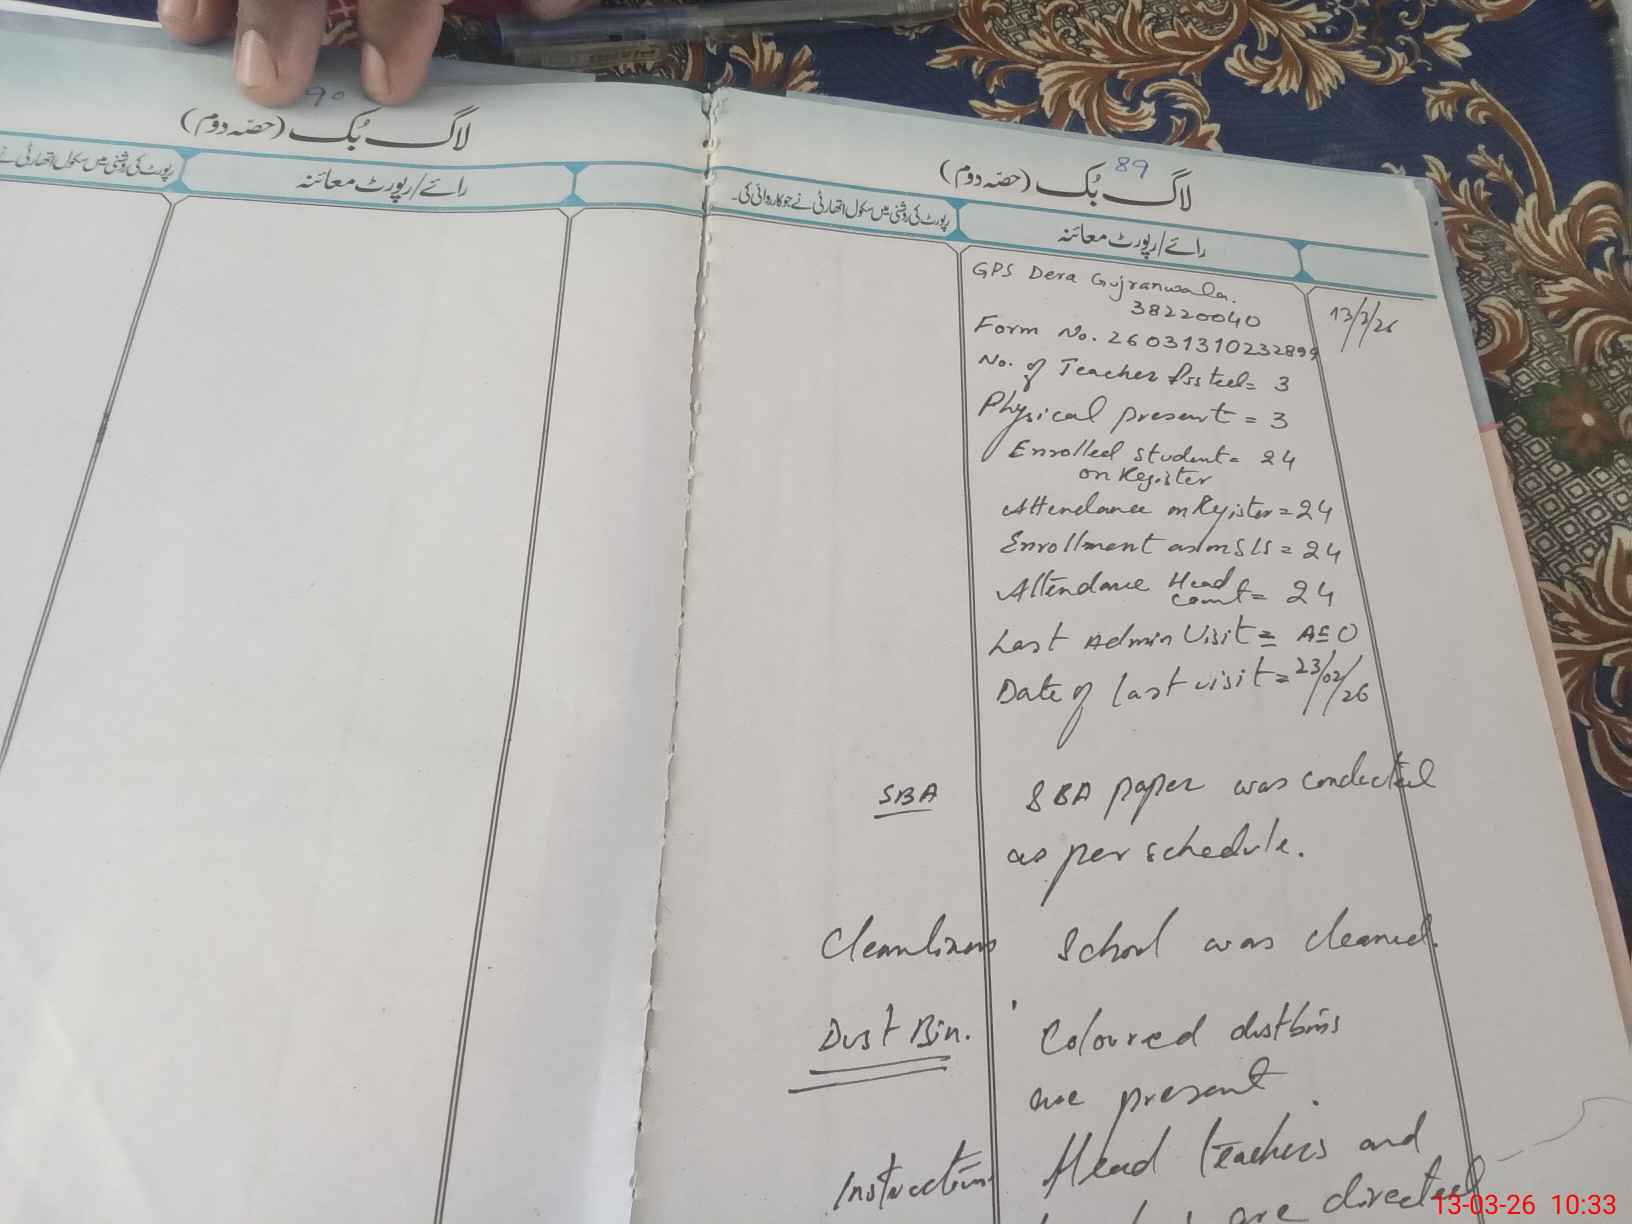 90
لاگ بُک (حصّہ دوم)
رپورٹ کی روشنی میں سکول اتھارٹی نے
رائے/رپورٹ معائنہ
89
لاگ بُک (حصّہ دوم)
رپورٹ کی روشنی میں سکول اتھارٹی نے جو کاروائی کی۔
رائے/رپورٹ معائنہ
13/3/26
GPS Dera Gujranwala.
38220040
Form No. 26031310232899
No. of Teacher Posted= 3
Physical present = 3
Enrolled student= 24
on Register
Attendance on Register = 24
Enrollment as on SIS = 24
Attendance Head
count= 24
Last Admin Visit = AEO
Date of last visit = 23/02/26
SBA SBA paper was conducted
as per schedule.
Cleanliness School was cleaned.
Dust Bin. Coloured dustbins
are present
Instructions Head teachers and
are directed
13-03-26 10:33